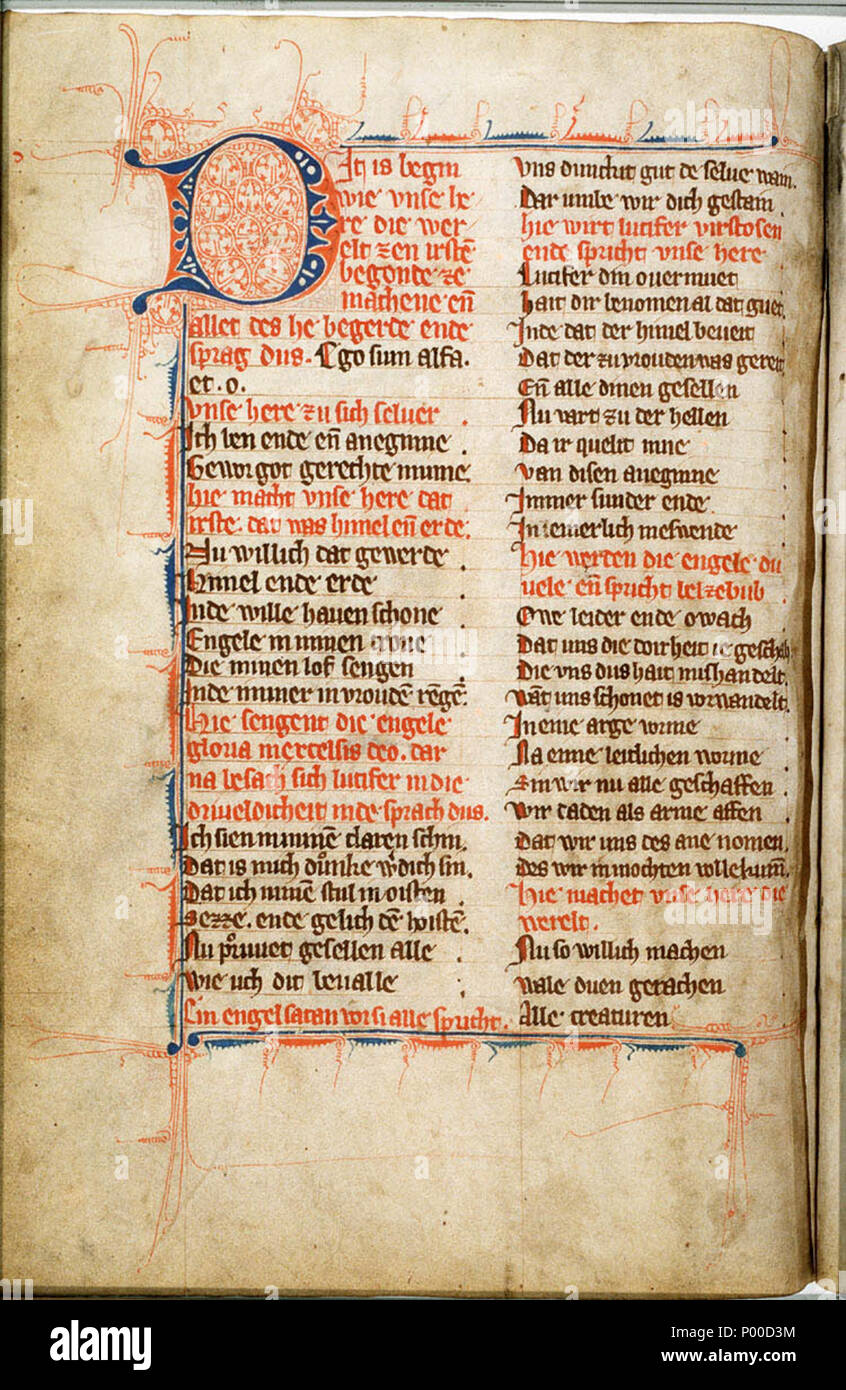 Dit is begin
wie vnse he
re die wer
elt zen irstē
begonde ze
machene eñ
allet des he begerde ende
sprag dus. Ego sum alfa.
et .o.
vnse here zu sich seluer
Ich ben ende eñ aneginne.
Gewor got gerechte minne.
hie macht vnse here dat
irste. dat was himel eñ erde.
Nu willich dat gewerde
Himel ende erde
Inde wille hauen schone
Engele in minen trone
Die minen lof sengen
Indeimmer in vroudē rēgē.
Hie sengent die engele
gloria in excelsis deo. dar
na besach sich lucifer in die
driueldicheit inde sprach dus.
Ich sien mininē claren schin.
Dat is mich dunke
Dat ich minē stul in oisten
Sezze. ende gelich dē hoistē.
Nu pruuet gesellen alle
wie uch dit beualle
Ein engel satan vor si alle spricht.
vns dunchit gut de selue wain.
Dar umbe wir dich gestain
hie wirt lucifer virstosen
ende spricht vnse here
Lucifer din ouermuet
hait dir benomen al dat guet.
Inde dat der himel beueit
Dat der zu vrouden was gereit
Eñ alle dinen gesellen
Nu vart zu der hellen
Da ir quelit inne
van disen aneginne
Immer sunder ende
In iemerlich meswende
Hie werden die engele du
uele eñ spricht belzebub
Owe leider ende owach
Dat uns die doirheit ie geschah
Die vns dus hait mishandelt.
wāt uns schonet is vorwandelt.
In eine arge vorme
Na eime leitlichen worme
Sin wir nu alle geschaffen
wir daden als arme affen
Dat wir uns des ane nomen.
des wir in mochten vollekumē.
Hie machet vnse here die
werelt.
Nu so willich machen
wale duen gerachen
Alle creaturen
alamy
alamy
Image ID: P00D3M
www.alamy.com